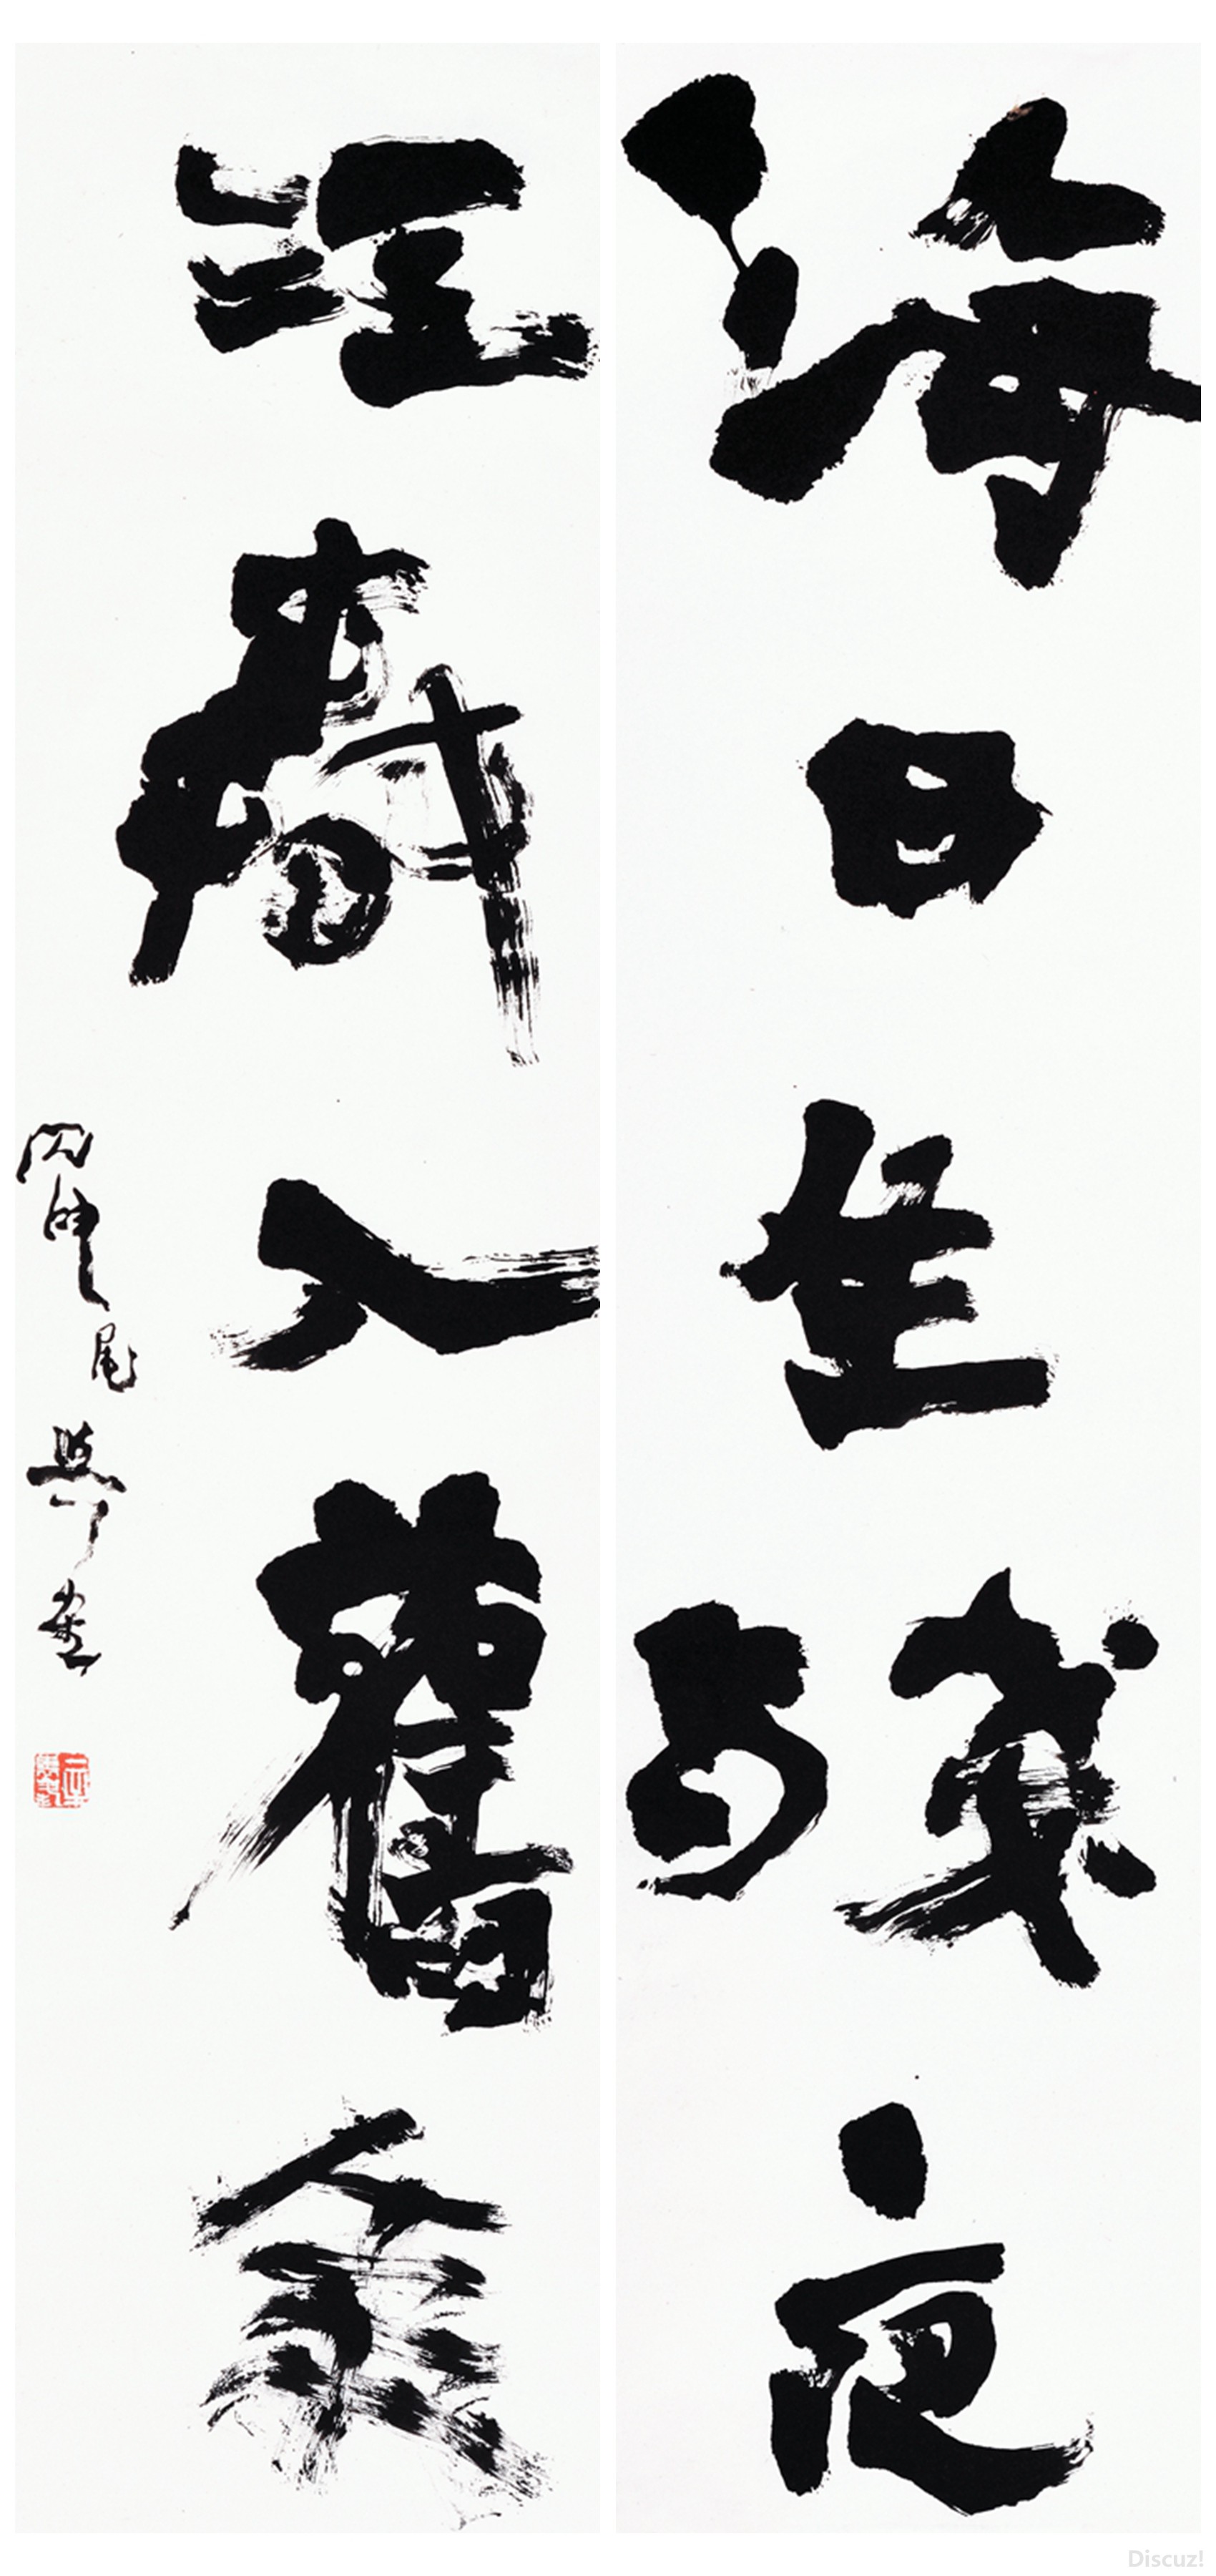 海日生殘夜
江春入舊年
丙申尾
Discuz!